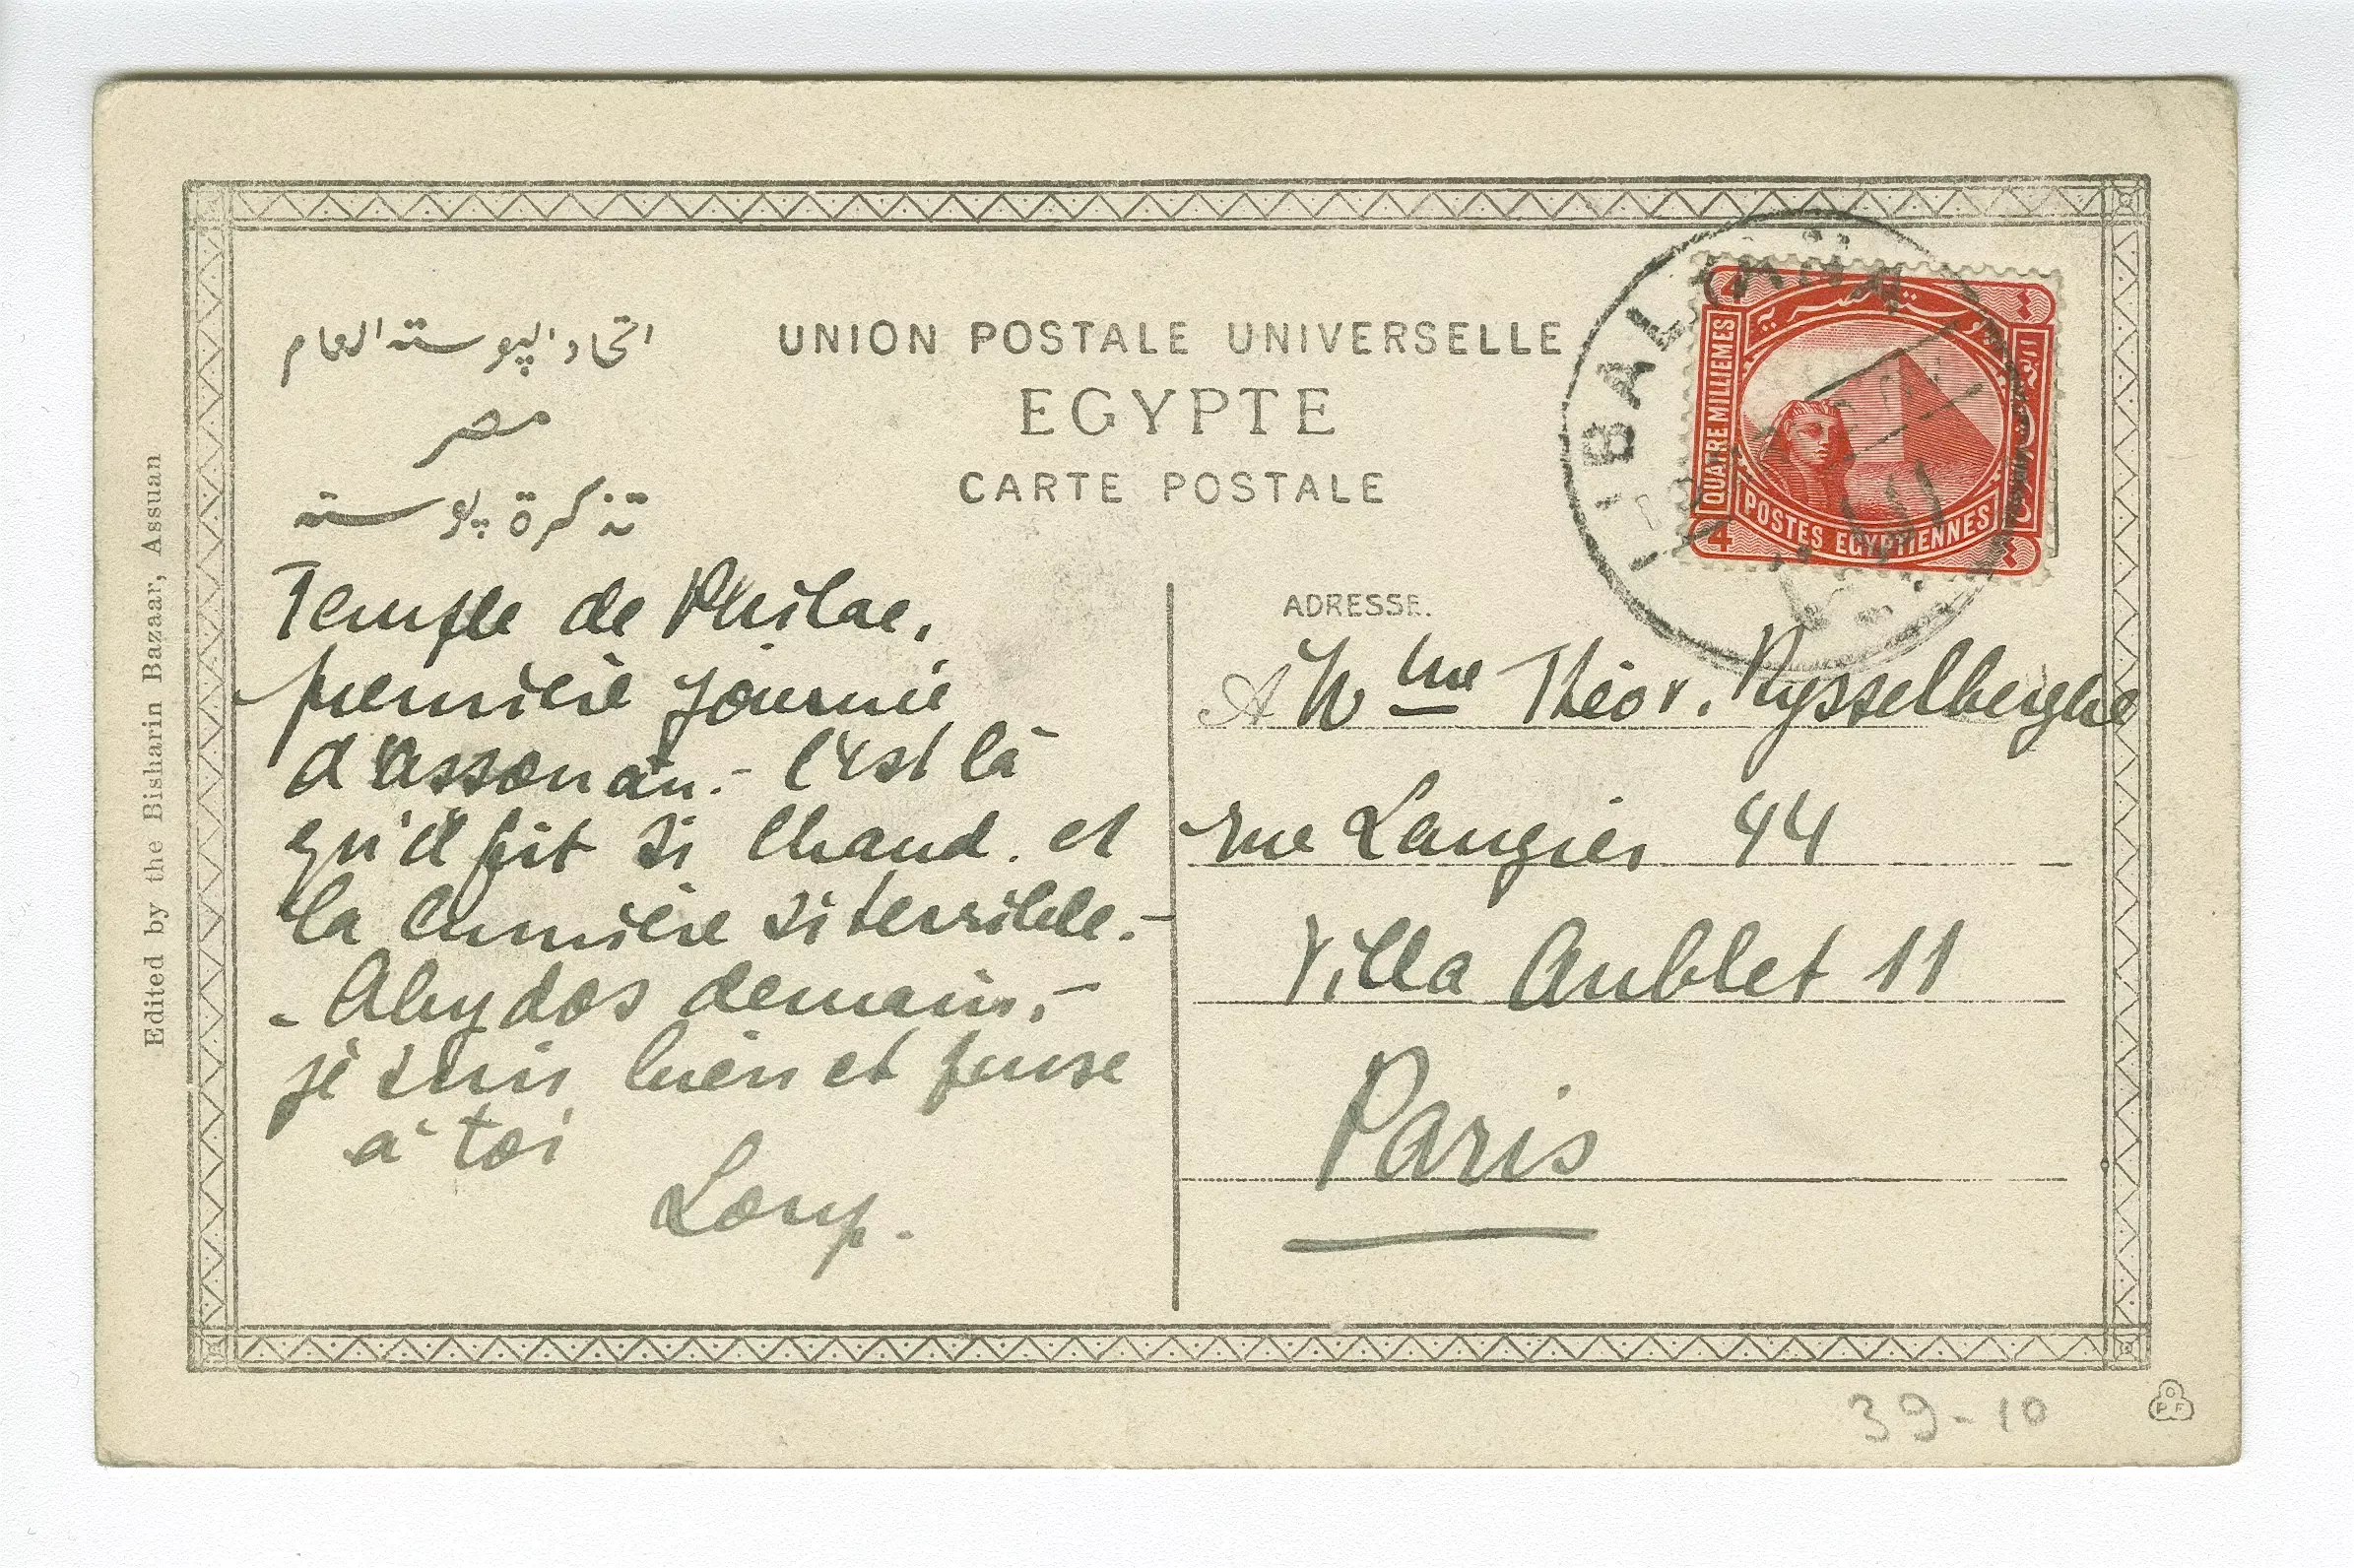 اتحاد البوسته العام
مصر
تذكرة بوسته
UNION POSTALE UNIVERSELLE
EGYPTE
CARTE POSTALE
Edited by the Bisharin Bazaar, Assuan
Temple de Philae,
première journée
d'Assouan. - C'est là
qu'il fait si chaud. et
la lumière si terrible. -
- Abydos demain, -
je suis bien et pense
à toi
Loup.
QUATRE MILLIEMES
POSTES EGYPTIENNES
4
BAL
ADRESSE.
A Mme Théo v. Rysselberghe
rue Laugier 44
Villa Aublet 11
Paris
39-10
C
P F